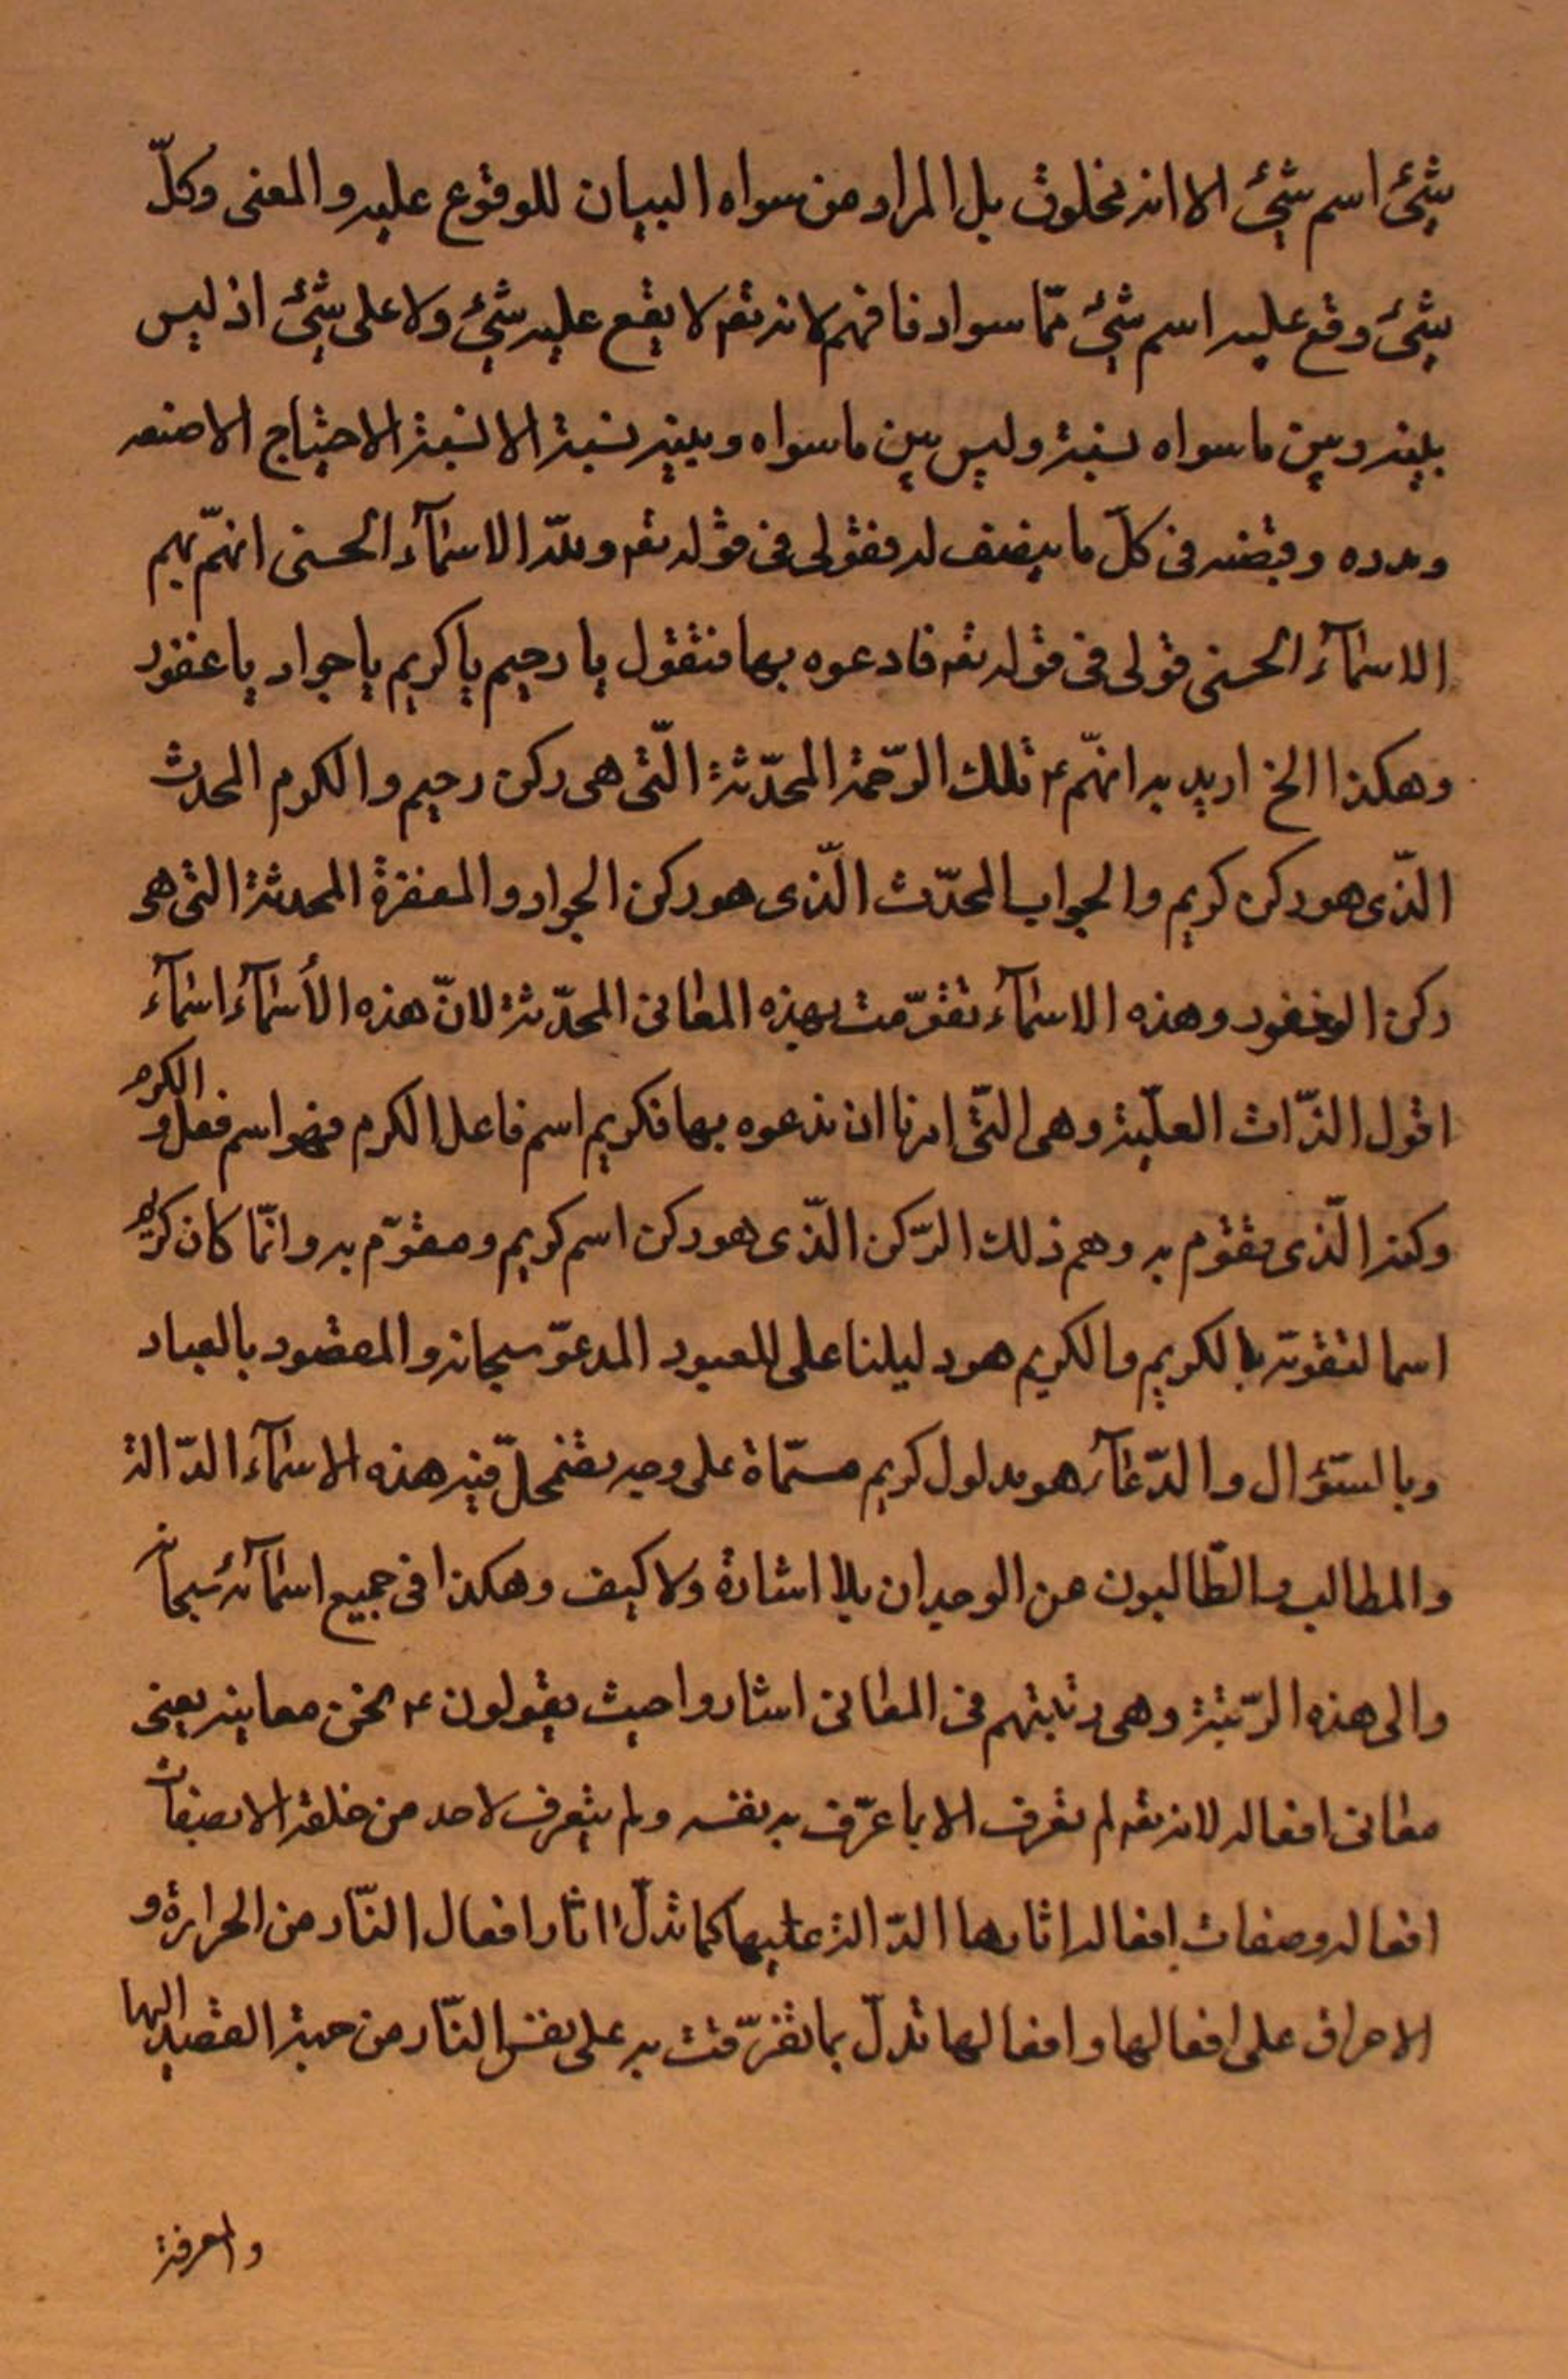 شئ اسم شئ الا انه مخلوق بل المراد من سواه البيان للوقوع عليه والمعنى وكلّ
شئ وقع عليه اسم شئ ممّا سواه فافهم لانه تعه لا يقع عليه شئ ولا على شئ اذ ليس
بينه وبين ما سواه نسبة وليس بين ما سواه وبينه نسبة الا نسبة الاحتياج الا صنعه
ومدده وقبضه فى كلّ ما يضف له فقولى فى قوله تعه وللّه الاسمآء الحسنى انهّم بهم
الاسمآء الحسنى قولى فى قوله تعه فادعوه بها فتقول يا رحيم يا كريم يا جواد يا غفور
وهكذا الخ اريد به انهّم ع تلك الرّحمة المحدّثة الّتى هى ركن رحيم والكرم المحدث
الذّى هو ركن كريم والجواب المحدّث الذّى هو ركن الجواد والمغفرة المحدثة التى هى
ركن الغفور وهذه الاسمآء تقوّمت بهذه المعانى المحدّثة لانّ هذه الأسمآء اسمآء
اقول الذّات العليّة وهى التّى امرنا ان ندعوه بها فكريم اسم فاعل الكرم فهو اسم فعل و الكرم
وكذا الّذى تقوم به وهم ذلك الرّكن الذّى هو ركن اسم كريم ومقوّم به وانّما كان كريم
اسما لتقوته بالكريم والكريم هو دليلنا على المعبود المدعوّ سبحانه والمقصود بالعباد
وبالسّؤال والدّعآء هو مدلول كريم مسمّاة على وجه يضمحلّ فيه هذه الاسمآء الدّالة
والمطالب والطّالبون عن الوجدان بلا اشارة ولا كيف وهكذا فى جميع اسمآئه سبحانه
والى هذه الرّتبة وهى رتبتهم فى المعانى اشاروا حيث يقولون ع نحن معانيه يعنى
معانى افعاله لانه تعه لم تعرف الا بما عرّف به نفسه ولم يتعرف لاحد من خلقه الا بصفات
افعاله وصفات افعاله اثارها الدّالة عليها كما تدلّ اثار افعال النّار من الحرارة و
الاحراق على افعالها وافعالها تدلّ بما تعرّفت به على نفس النّار من جهة القصد اليها
والمعرفة